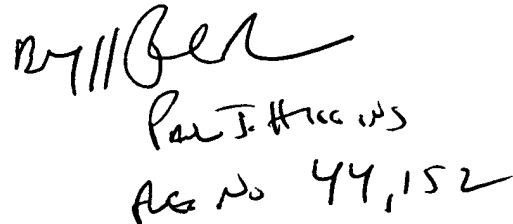 By //
Paul J. Higgins
Reg No 44,152